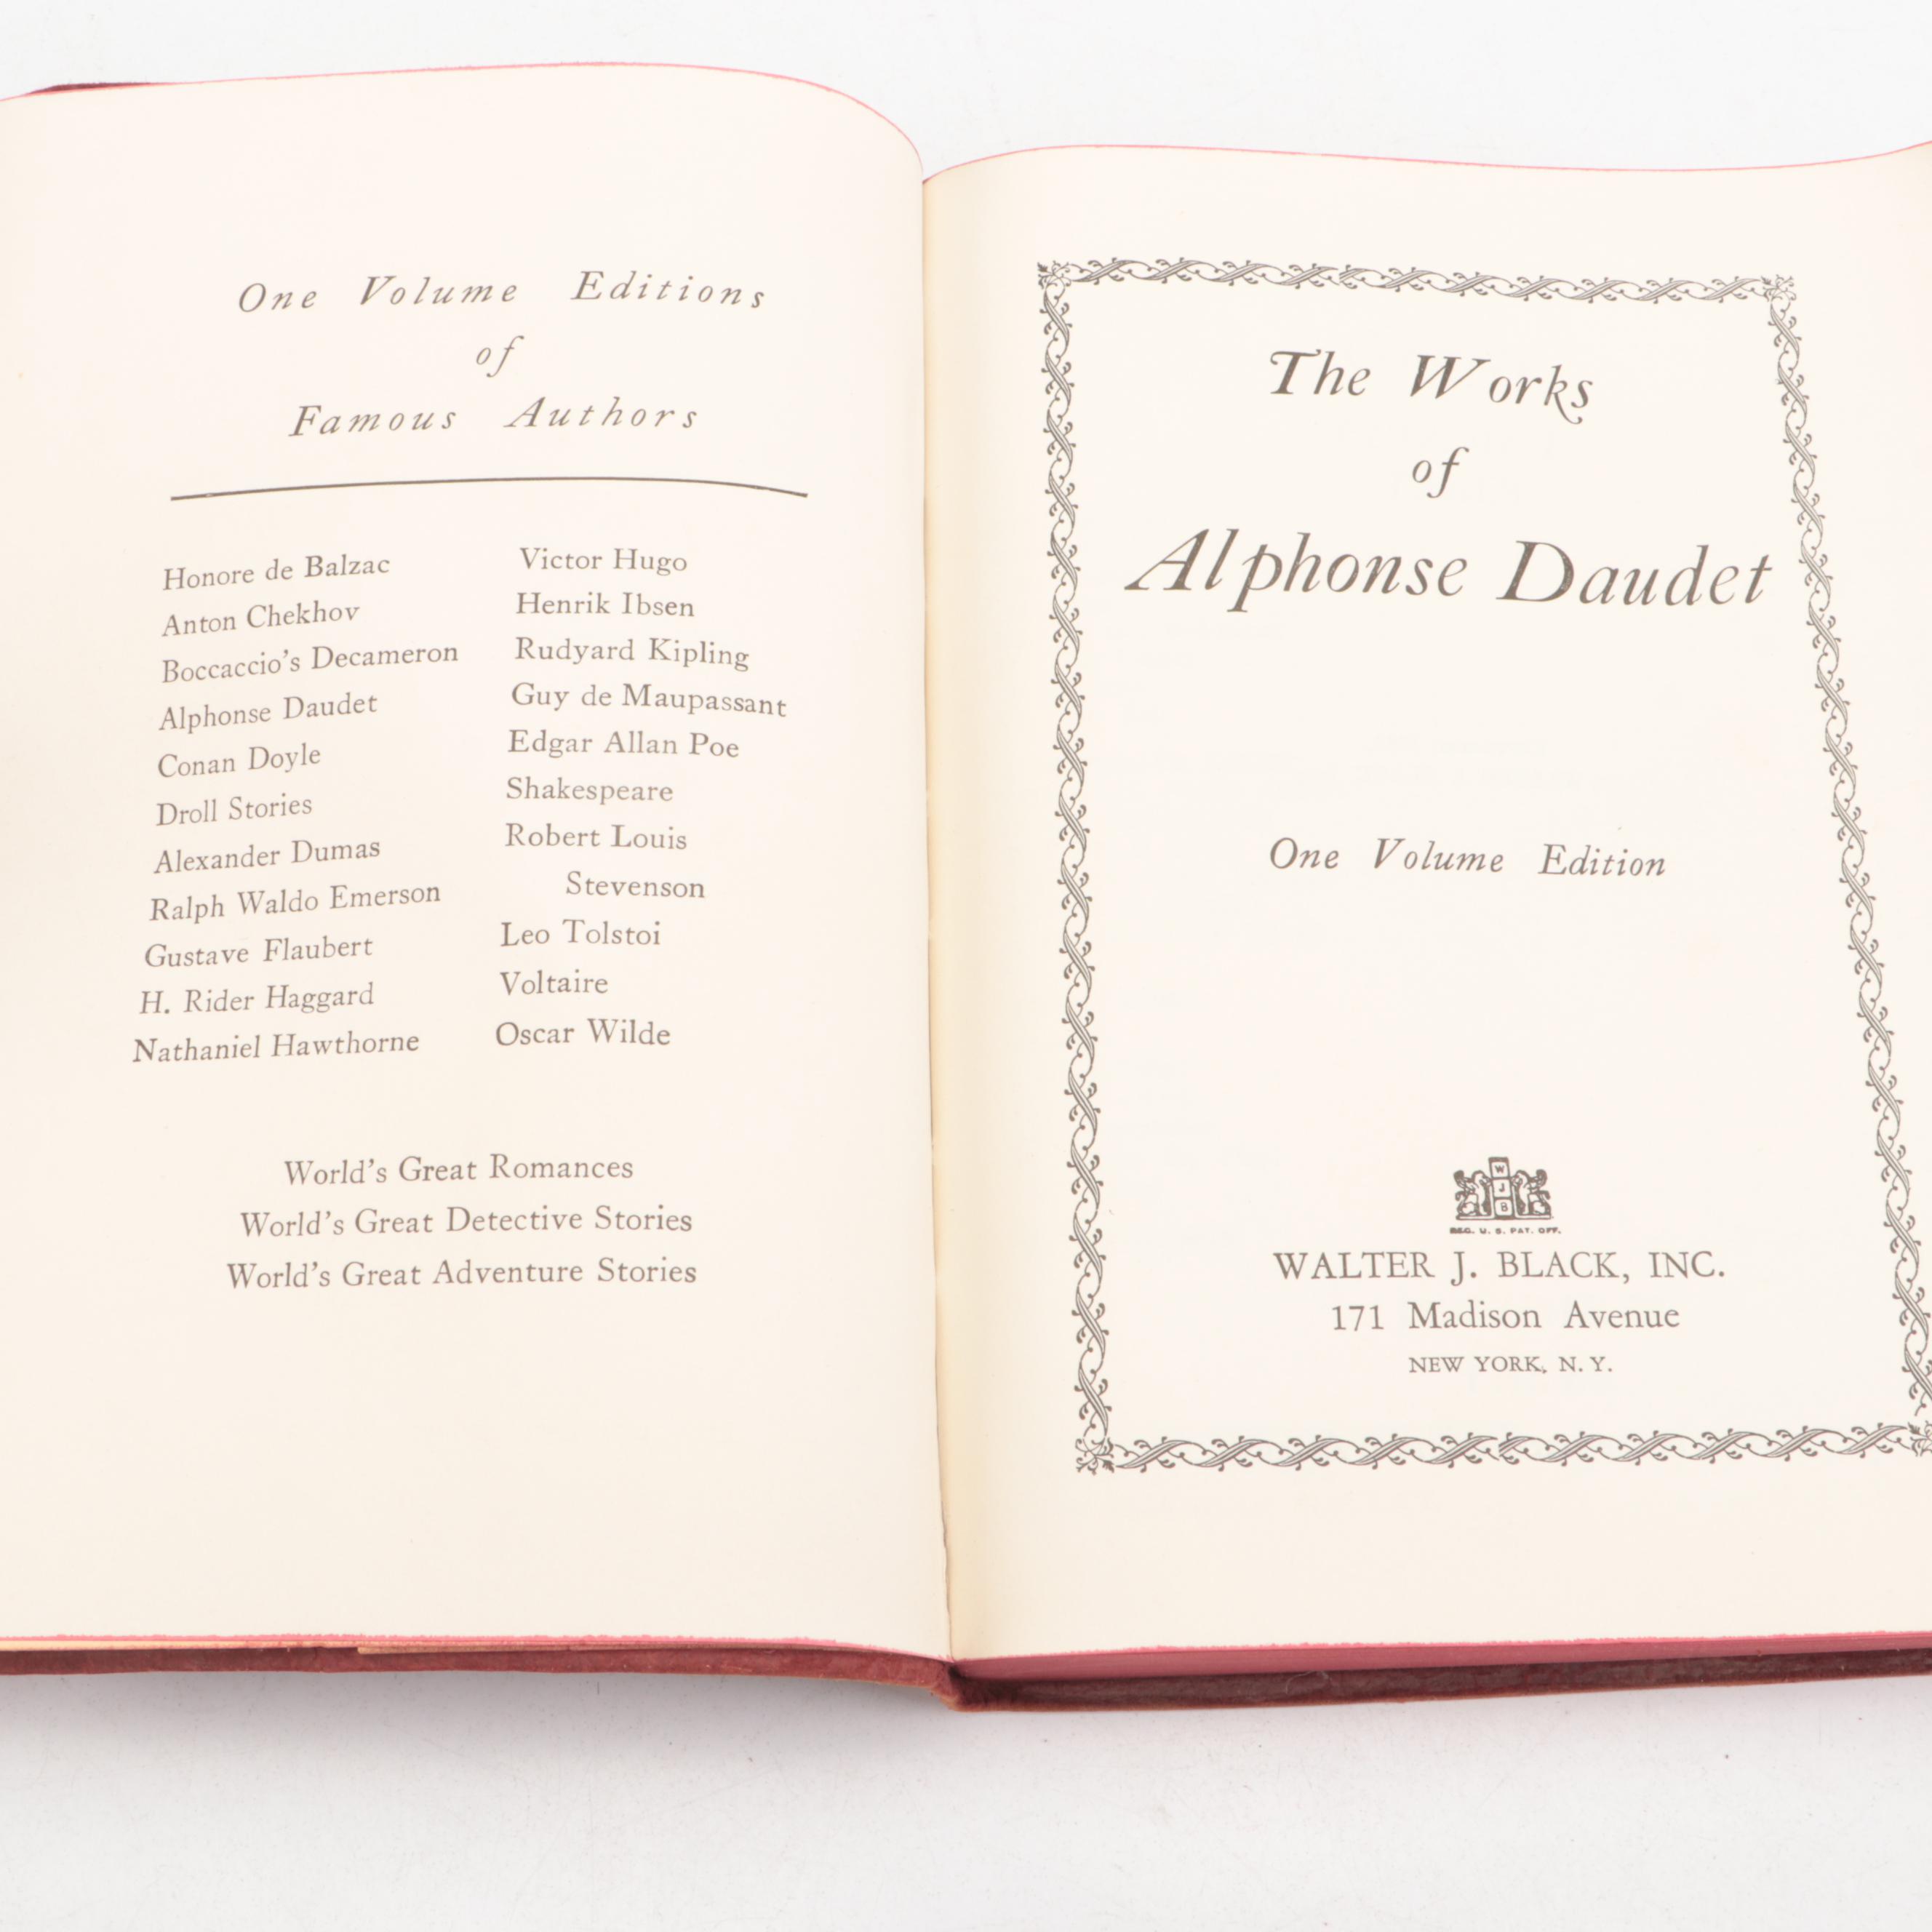 One Volume Editions
of
Famous Authors
Honore de Balzac
Anton Chekhov
Boccaccio's Decameron
Alphonse Daudet
Conan Doyle
Droll Stories
Alexander Dumas
Ralph Waldo Emerson
Gustave Flaubert
H. Rider Haggard
Nathaniel Hawthorne
Victor Hugo
Henrik Ibsen
Rudyard Kipling
Guy de Maupassant
Edgar Allan Poe
Shakespeare
Robert Louis
Stevenson
Leo Tolstoi
Voltaire
Oscar Wilde
World's Great Romances
World's Great Detective Stories
World's Great Adventure Stories
The Works
of
Alphonse Daudet
One Volume Edition
W
J
B
REG. U. S. PAT. OFF.
WALTER J. BLACK, INC.
171 Madison Avenue
NEW YORK, N. Y.